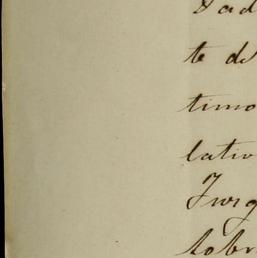 dad
te de
timo
lativ
Jurg
sobr